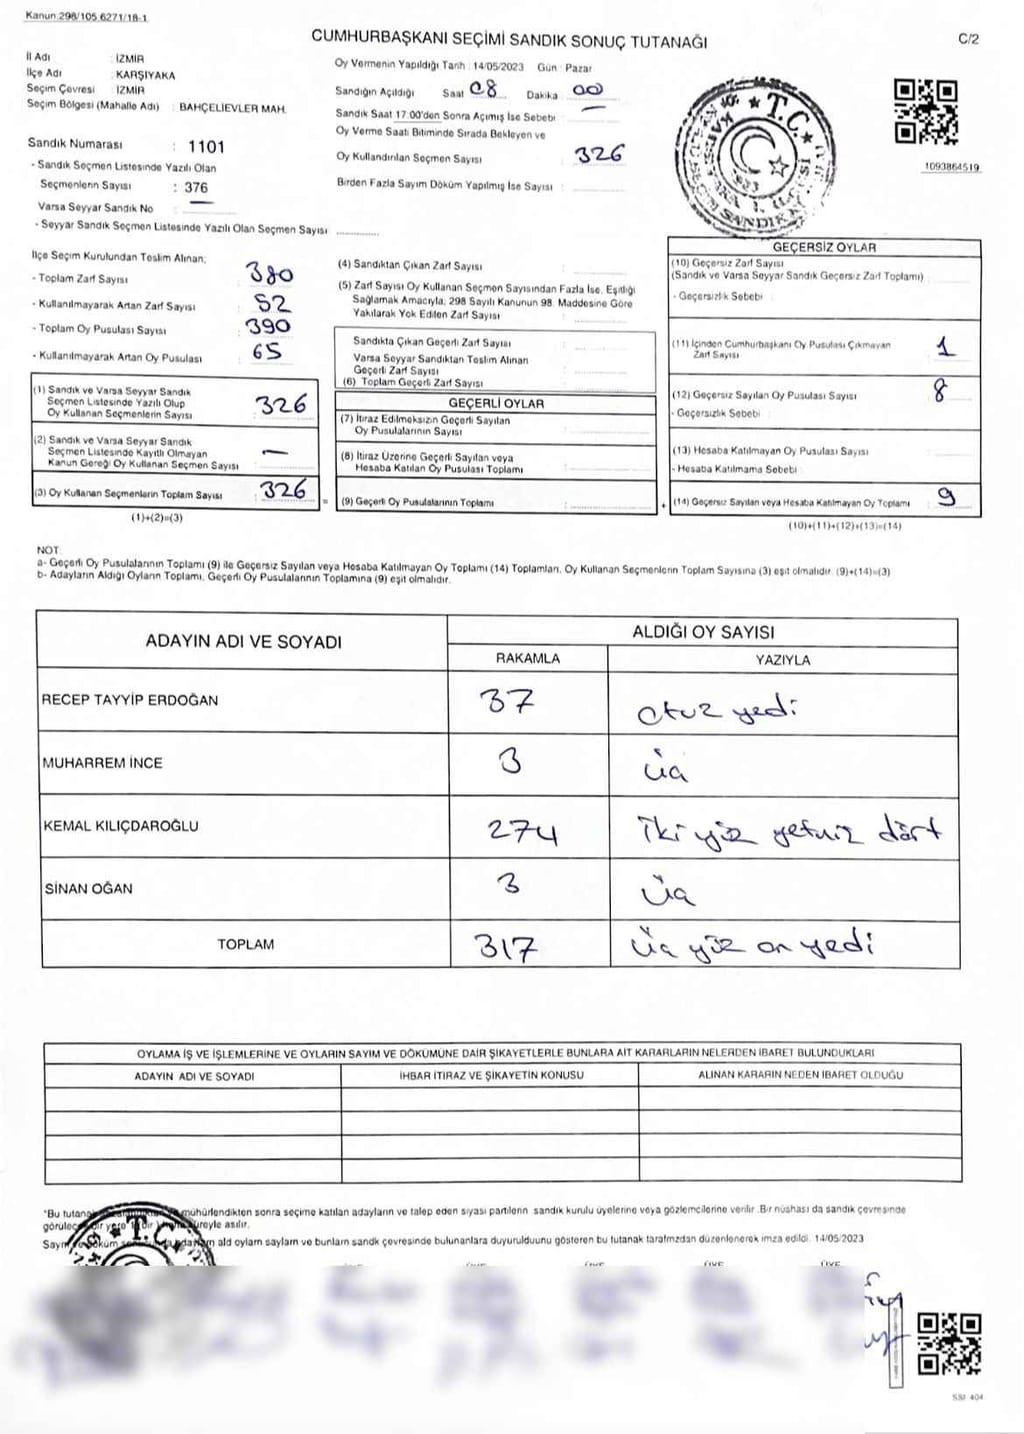 Kanun 298/105 6271/18-1
CUMHURBAŞKANI SEÇİMİ SANDIK SONUÇ TUTANAĞI
C/2
İl Adı : İZMİR
İlçe Adı : KARŞIYAKA
Seçim Çevresi : İZMİR
Seçim Bölgesi (Mahalle Adı) : BAHÇELİEVLER MAH.
Sandık Numarası : 1101
- Sandık Seçmen Listesinde Yazılı Olan
Seçmenlerin Sayısı : 376
Varsa Seyyar Sandık No : —
- Seyyar Sandık Seçmen Listesinde Yazılı Olan Seçmen Sayısı
Oy Vermenin Yapıldığı Tarih : 14/05/2023 Gün : Pazar
Sandığın Açıldığı Saat 08 Dakika 00
Sandık Saat 17:00'den Sonra Açımış İse Sebebi : —
Oy Verme Saati Bitiminde Sırada Bekleyen ve
Oy Kullandırılan Seçmen Sayısı : 326
Birden Fazla Sayım Döküm Yapılmış İse Sayısı :
T.C.
1093864519
İlçe Seçim Kurulundan Teslim Alınan;
- Toplam Zarf Sayısı : 380
- Kullanılmayarak Artan Zarf Sayısı : 52
- Toplam Oy Pusulası Sayısı : 390
- Kullanılmayarak Artan Oy Pusulası : 65
(1) Sandık ve Varsa Seyyar Sandık
Seçmen Listesinde Yazılı Olup
Oy Kullanan Seçmenlerin Sayısı : 326
(2) Sandık ve Varsa Seyyar Sandık
Seçmen Listesinde Kayıtlı Olmayan
Kanun Gereği Oy Kullanan Seçmen Sayısı : —
(3) Oy Kullanan Seçmenlerin Toplam Sayısı : 326
(1)+(2)=(3)
(4) Sandıktan Çıkan Zarf Sayısı :
(5) Zarf Sayısı Oy Kullanan Seçmen Sayısından Fazla İse, Eşitliği
Sağlamak Amacıyla; 298 Sayılı Kanunun 98. Maddesine Göre
Yakılarak Yok Edilen Zarf Sayısı :
Sandıkta Çıkan Geçerli Zarf Sayısı :
Varsa Seyyar Sandıktan Teslim Alınan
Geçerli Zarf Sayısı :
(6) Toplam Geçerli Zarf Sayısı :
GEÇERLİ OYLAR
(7) İtiraz Edilmeksizin Geçerli Sayılan
Oy Pusulalarının Sayısı :
(8) İtiraz Üzerine Geçerli Sayılan veya
Hesaba Katılan Oy Pusulası Toplamı :
= (9) Geçerli Oy Pusulalarının Toplamı :
GEÇERSİZ OYLAR
(10) Geçersiz Zarf Sayısı
(Sandık ve Varsa Seyyar Sandık Geçersiz Zarf Toplamı) :
- Geçersizlik Sebebi :
(11) İçinden Cumhurbaşkanı Oy Pusulası Çıkmayan
Zarf Sayısı : 1
(12) Geçersiz Sayılan Oy Pusulası Sayısı : 8
- Geçersizlik Sebebi :
(13) Hesaba Katılmayan Oy Pusulası Sayısı :
- Hesaba Katılmama Sebebi :
+ (14) Geçersiz Sayılan veya Hesaba Katılmayan Oy Toplamı : 9
(10)+(11)+(12)+(13)=(14)
NOT:
a- Geçerli Oy Pusulalarının Toplamı (9) ile Geçersiz Sayılan veya Hesaba Katılmayan Oy Toplamı (14) Toplamları, Oy Kullanan Seçmenlerin Toplam Sayısına (3) eşit olmalıdır. (9)+(14)=(3)
b- Adayların Aldığı Oyların Toplamı, Geçerli Oy Pusulalarının Toplamına (9) eşit olmalıdır.
ADAYIN ADI VE SOYADI
ALDIĞI OY SAYISI
RAKAMLA YAZIYLA
RECEP TAYYİP ERDOĞAN 37 otuz yedi
MUHARREM İNCE 3 üç
KEMAL KILIÇDAROĞLU 274 iki yüz yetmiz dört
SİNAN OĞAN 3 üç
TOPLAM 317 üç yüz on yedi
OYLAMA İŞ VE İŞLEMLERİNE VE OYLARIN SAYIM VE DÖKÜMÜNE DAİR ŞİKAYETLERLE BUNLARA AİT KARARLARIN NELERDEN İBARET BULUNDUKLARI
ADAYIN ADI VE SOYADI İHBAR İTİRAZ VE ŞİKAYETİN KONUSU ALINAN KARARIN NEDEN İBARET OLDUĞU
"Bu tutanak mühürlendikten sonra seçime katılan adayların ve talep eden siyasi partilerin sandık kurulu üyelerine veya gözlemcilerine verilir. Bir nüshası da sandık çevresinde
süreyle asılır.
ald oylam saylam ve bunlarn sandk çevresinde bulunanlara duyurulduunu gösteren bu tutanak taraftmzdan düzenlenerek imza edildi. 14/05/2023
T.C.
ÜYE ÜYE ÜYE ÜYE
SSI 404